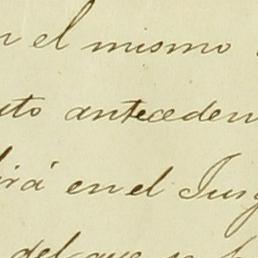 n el mismo
uto anteceden
irá en el Juzg
del que se h